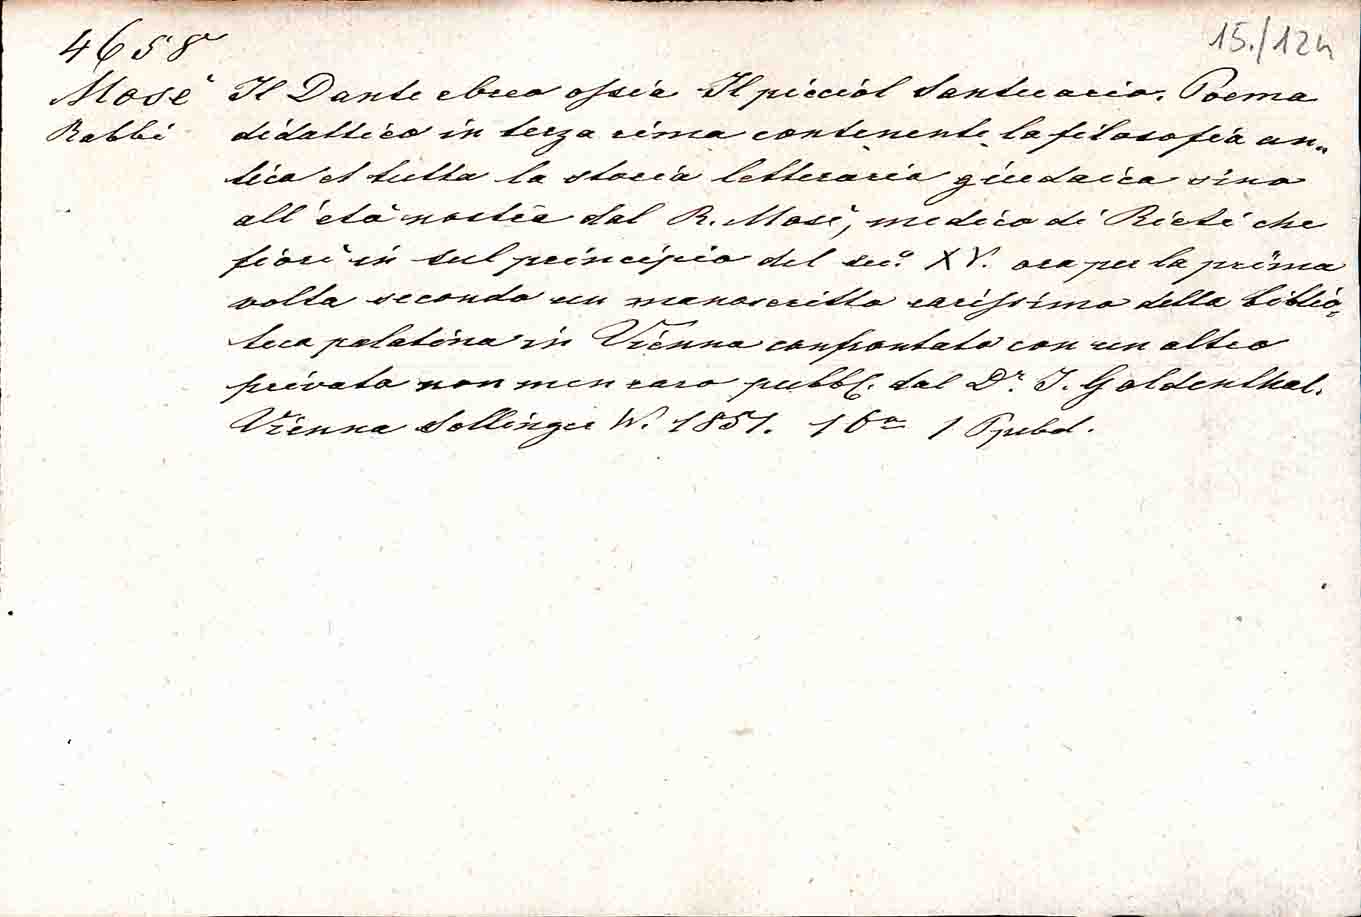 4658
15./124
Mosè Il Dante ebreo ossia Il picciol Santuario. Poema
Rabbi didattico in terza rima contenente la filosofia an-
tica et tutta la storia letteraria giudaica sino
all'età nostra dal R. Mosè, medico di Rieti che
fiorì in sul principio del sec. XV. ora per la prima
volta secondo un manoscritto rarissimo della biblio-
teca palatina in Vienna confrontato con un altro
privato non men raro pubbl. dal Dr. J. Goldenthal.
Vienna Sollinger W. 1851. 16° 1 Ppbd.